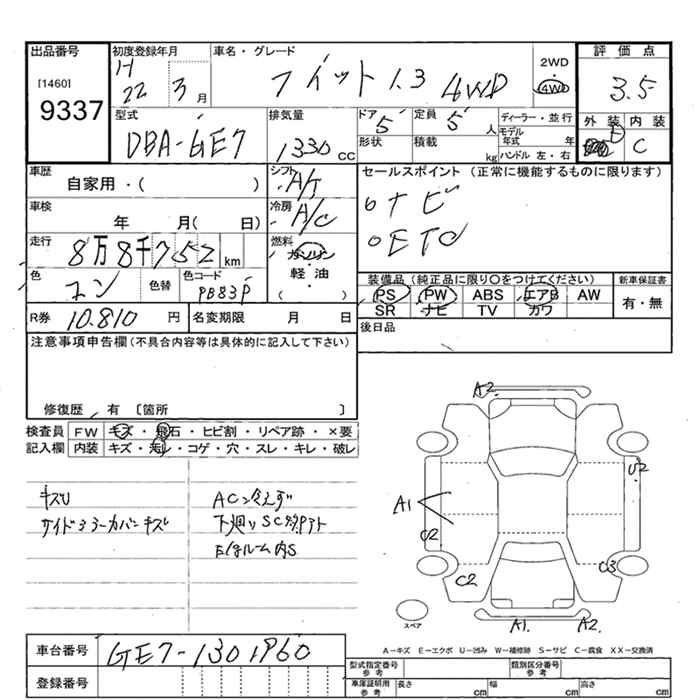 出品番号 初度登録年月 車名・グレード 2WD 評価点
[1460] H フィット 1.3 4WD 4WD 3.5
9337 22 3月
型式 排気量 ドア 定員 ディーラー・並行 外装 内装
DBA-GE7 1330 CC 5 5人 モデル年式 年 E C
形状 積載 kg ハンドル 左・右
車歴 シフト セールスポイント(正常に機能するものに限ります)
自家用・( ) A/T ○ナビ
車検 冷房 ○ETC
年 月( 日) A/C
走行 燃料
8万8千752 km ガソリン
軽油
( )
色 コン 色替 色コード PB83P
装備品(純正品に限り○をつけてください) 新車保証書
PS PW ABS エアB AW 有・無
SR ナビ TV カワ
R券 10.810 円 名変期限 月 日 後日品
注意事項申告欄(不具合内容等は具体的に記入して下さい)
修復歴 有 〔箇所 〕
検査員 FW キズ・飛石・ヒビ割・リペア跡・×要
記入欄 内装 キズ・汚レ・コゲ・穴・スレ・キレ・破レ
キズU ACン冷えず
サイドミラーカバーキズ 下廻りSC
ルーム内S
A2
U2
A1
C2
C2 C3
スペア A1 A2
A-キズ E-エクボ U-凹み W-補修跡 S-サビ C-腐食 XX-交換済
車台番号 GE7-1301960
登録番号
型式指定番号 参考 類別区分番号 参考
車庫証明用 参考 長さ cm 幅 cm 高さ cm